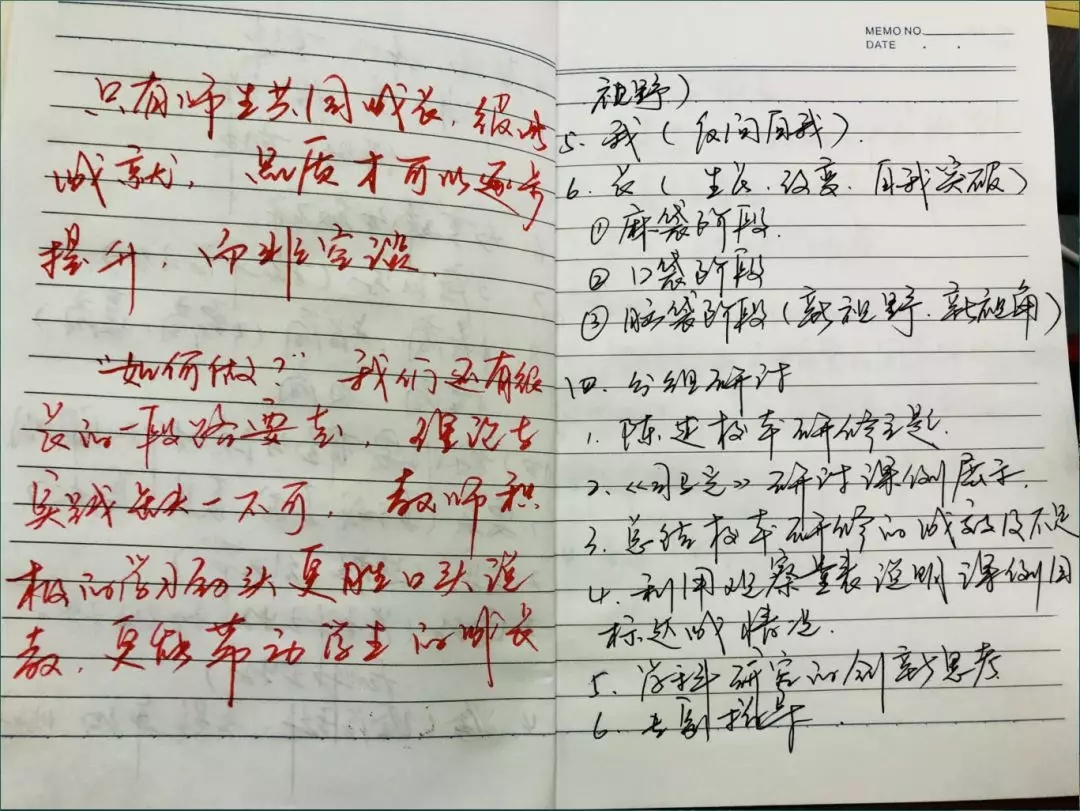 只有师生共同成长，彼此
成就，品质才可以逐步
提升，而非空谈.
“如何做？”我们还有很
长的一段路要走，理论与
实践缺一不可，教师积
极的学习劲头更胜口头说
教，更能带动学生的成长
MEMO NO.
DATE . .
视野）
5. 我（反问自我）.
6. 长（生长.改变.自我突破）
① 麻袋阶段.
② 口袋阶段
③ 脑袋阶段（新视野.新视角）
四. 分组研讨
1. 陈述校本研修主题.
2. 《司马光》研讨课例展示.
3. 总结校本研修的成效及不足
4. 利用观察量表说明课例目
标达成情况.
5. 学科研究的创新思考
6. 专家指导.